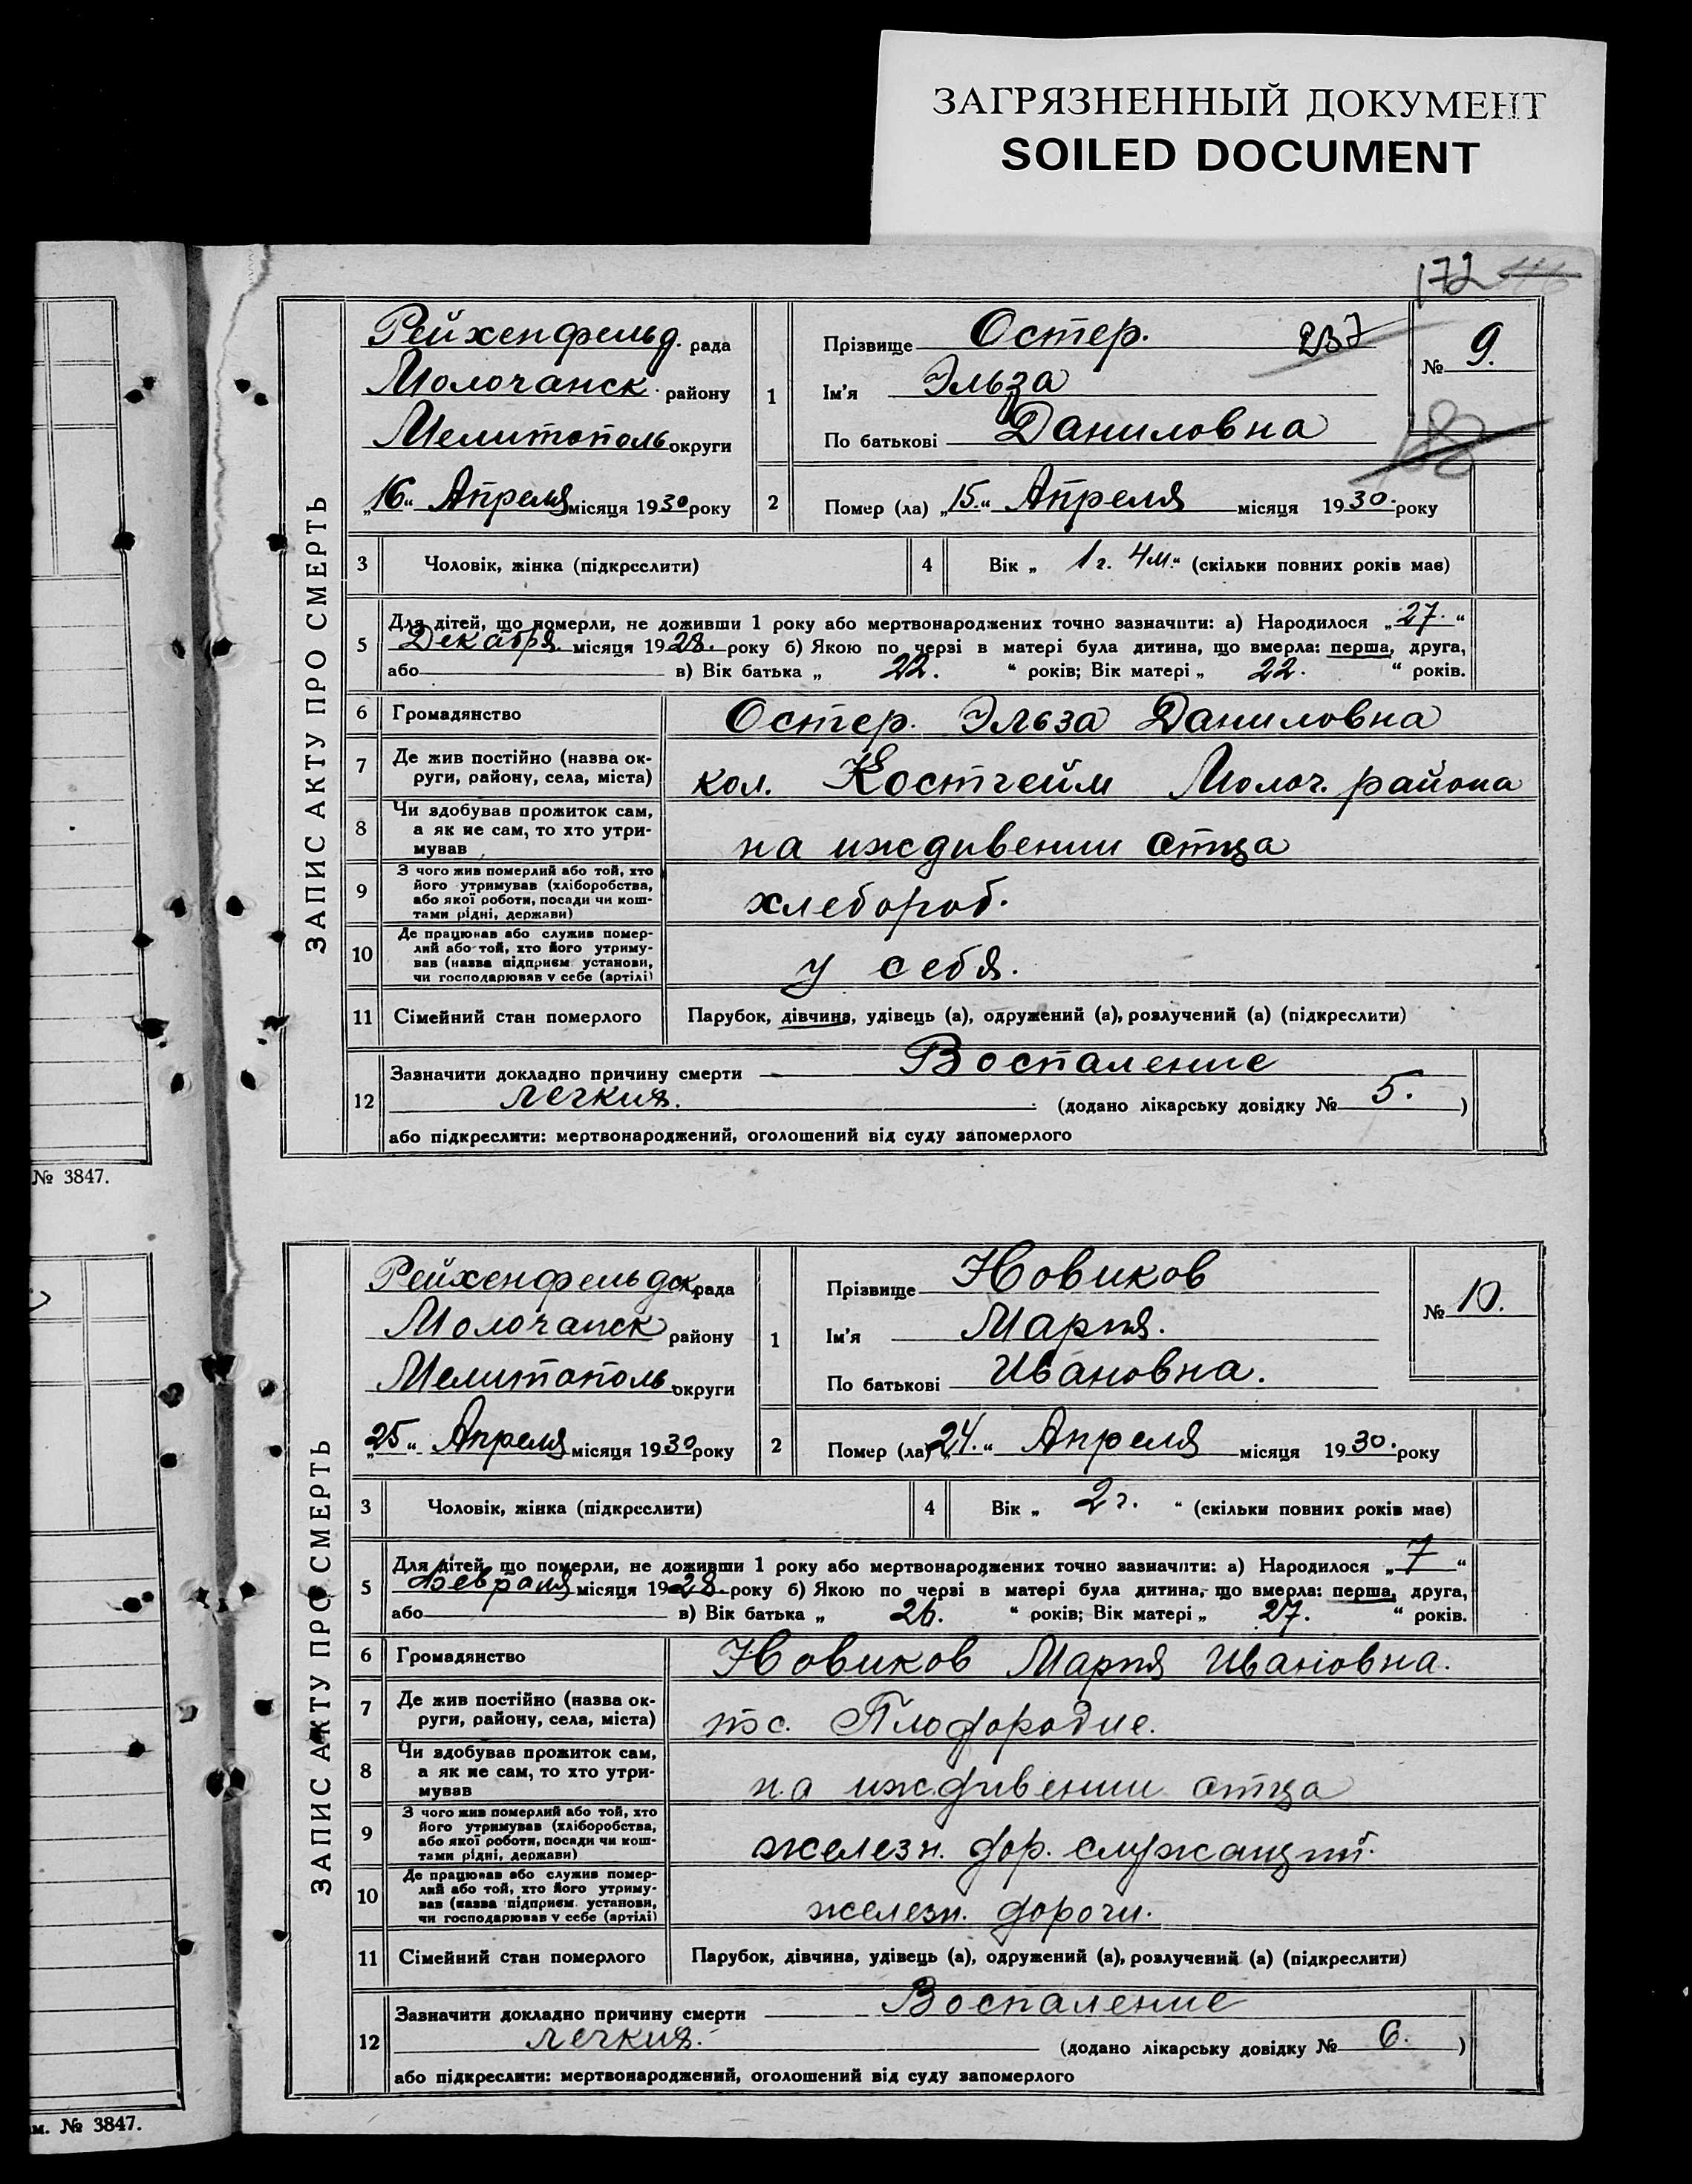 ЗАГРЯЗНЕННЫЙ ДОКУМЕНТ
SOILED DOCUMENT
172
ЗАПИС АКТУ ПРО СМЕРТЬ
Рейхенфельд. рада
Молочанск. району
Мелитополь округи
„16“ Апреля місяця 1930 року
1
Прізвище Остер.
237
Ім'я Эльза
По батькові Даниловна
№ 9.
188
2
Помер (ла) „15.“ Апреля місяця 1930. року
3
Чоловік, жінка (підкреслити)
4
Вік „ 1 г. 4 м.“ (скільки повних років має)
5
Для дітей, що померли, не доживши 1 року або мертвонароджених точно зазначити: а) Народилося „27.“
Декабря місяця 1928. року б) Якою по черзі в матері була дитина, що вмерла: перша, друга,
або в) Вік батька „ 22. “ років; Вік матері „ 22. “ років.
6
Громадянство
Остер. Эльза Даниловна
7
Де жив постійно (назва ок-
руги, району, села, міста)
кол. Костгейм Молоч. района
8
Чи здобував прожиток сам,
а як не сам, то хто утри-
мував
на иждивении отца
9
З чого жив померлий або той, хто
його утримував (хліборобства,
або якої роботи, посади чи кош-
тами рідні, держави)
хлебороб.
10
Де працював або служив помер-
лий або той, хто його утриму-
вав (назва підприєм. установи,
чи господарював у себе (артілі)
у себя.
11
Сімейний стан померлого
Парубок, дівчина, удівець (а), одружений (а), розлучений (а) (підкреслити)
12
Зазначити докладно причину смерти Воспаление
легкия. (додано лікарську довідку № 5. )
або підкреслити: мертвонароджений, оголошений від суду запомерлого
№ 3847.
ЗАПИС АКТУ ПРО СМЕРТЬ
Рейхенфельдск рада
Молочанск району
Мелитополь округи
„25“ Апреля місяця 1930 року
1
Прізвище Новиков
Ім'я Мария.
По батькові Ивановна.
№ 10.
2
Помер (ла) „24.“ Апреля місяця 1930. року
3
Чоловік, жінка (підкреслити)
4
Вік „ 2 г. “ (скільки повних років має)
5
Для дітей, що померли, не доживши 1 року або мертвонароджених точно зазначити: а) Народилося „7“
Февраля місяця 1928 року б) Якою по черзі в матері була дитина, що вмерла: перша, друга,
або в) Вік батька „ 26. “ років; Вік матері „ 27. “ років.
6
Громадянство
Новиков Мария Ивановна.
7
Де жив постійно (назва ок-
руги, району, села, міста)
Плодородие.
8
Чи здобував прожиток сам,
а як не сам, то хто утри-
мував
на иждивении отца
9
З чого жив померлий або той, хто
його утримував (хліборобства,
або якої роботи, посади чи кош-
тами рідні, держави)
железн. дор. служащий.
10
Де працював або служив помер-
лий або той, хто його утриму-
вав (назва підприєм. установи,
чи господарював у себе (артілі)
железн. дороги.
11
Сімейний стан померлого
Парубок, дівчина, удівець (а), одружений (а), розлучений (а) (підкреслити)
12
Зазначити докладно причину смерти Воспаление
легкия. (додано лікарську довідку № 6. )
або підкреслити: мертвонароджений, оголошений від суду запомерлого
м. № 3847.